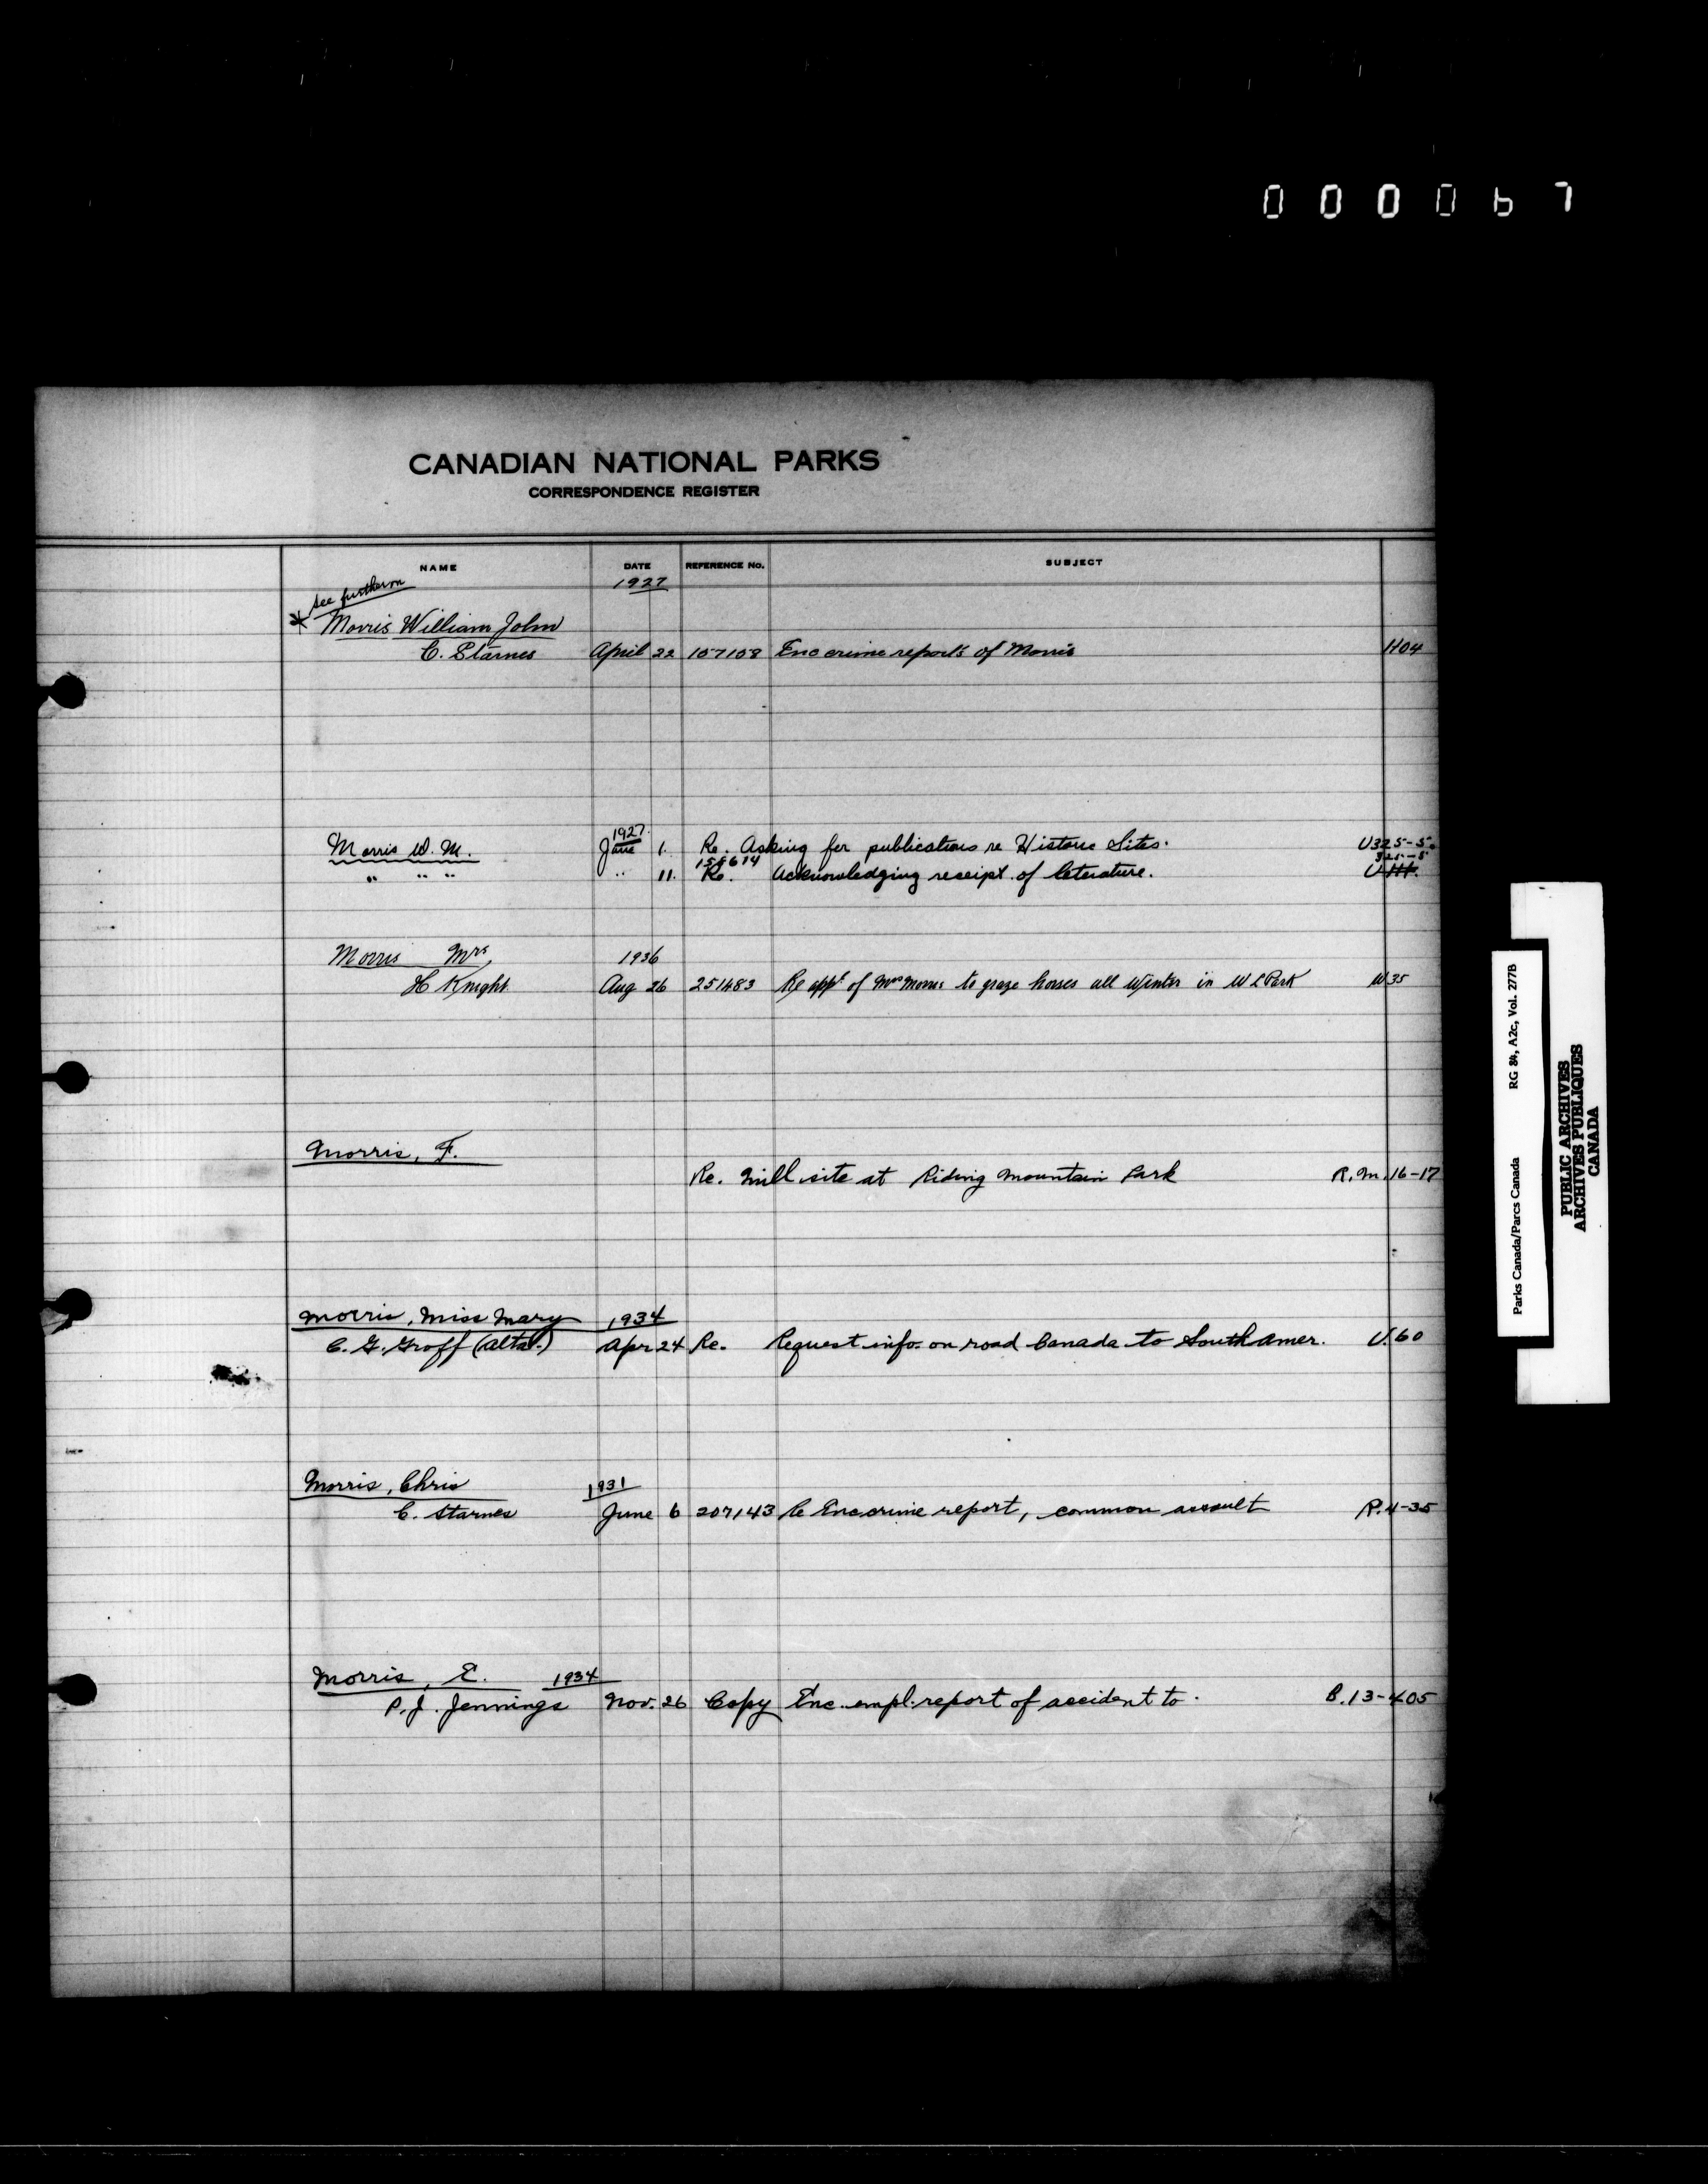 000067
CANADIAN NATIONAL PARKS
CORRESPONDENCE REGISTER
NAME DATE REFERENCE No. SUBJECT
1927
see further on
* Morris William John
C. Starnes April 22 157108 Enc crime reports of Morris H04
1927.
Morris W. M. June 1. Re. Asking for publications re Historic Sites. U325-5
158614 325-5
" " " " 11. Re. Acknowledging receipt of leterature. U
Morris Mrs 1936
H Knight Aug 26 251483 Re appt of Mrs Morris to graze horses all Winter in W L Park W35
Morris, F.
Re. Mill site at Riding Mountain Park R.M. 16-17
Morris, Miss Mary 1934
C. G. Groff (Alta.) Apr 24 Re. Request info. on road Canada to South Amer. U.60
Morris, Chris 1931
C. Starnes June 6 207143 Re Enc crime report, common assault R.4-35
Morris, E. 1934
P. J. Jennings Nov. 26 Copy Enc. empl. report of accident to. B.13-405
Parks Canada/Parcs Canada RG 84, A2c, Vol. 277B
PUBLIC ARCHIVES
ARCHIVES PUBLIQUES
CANADA